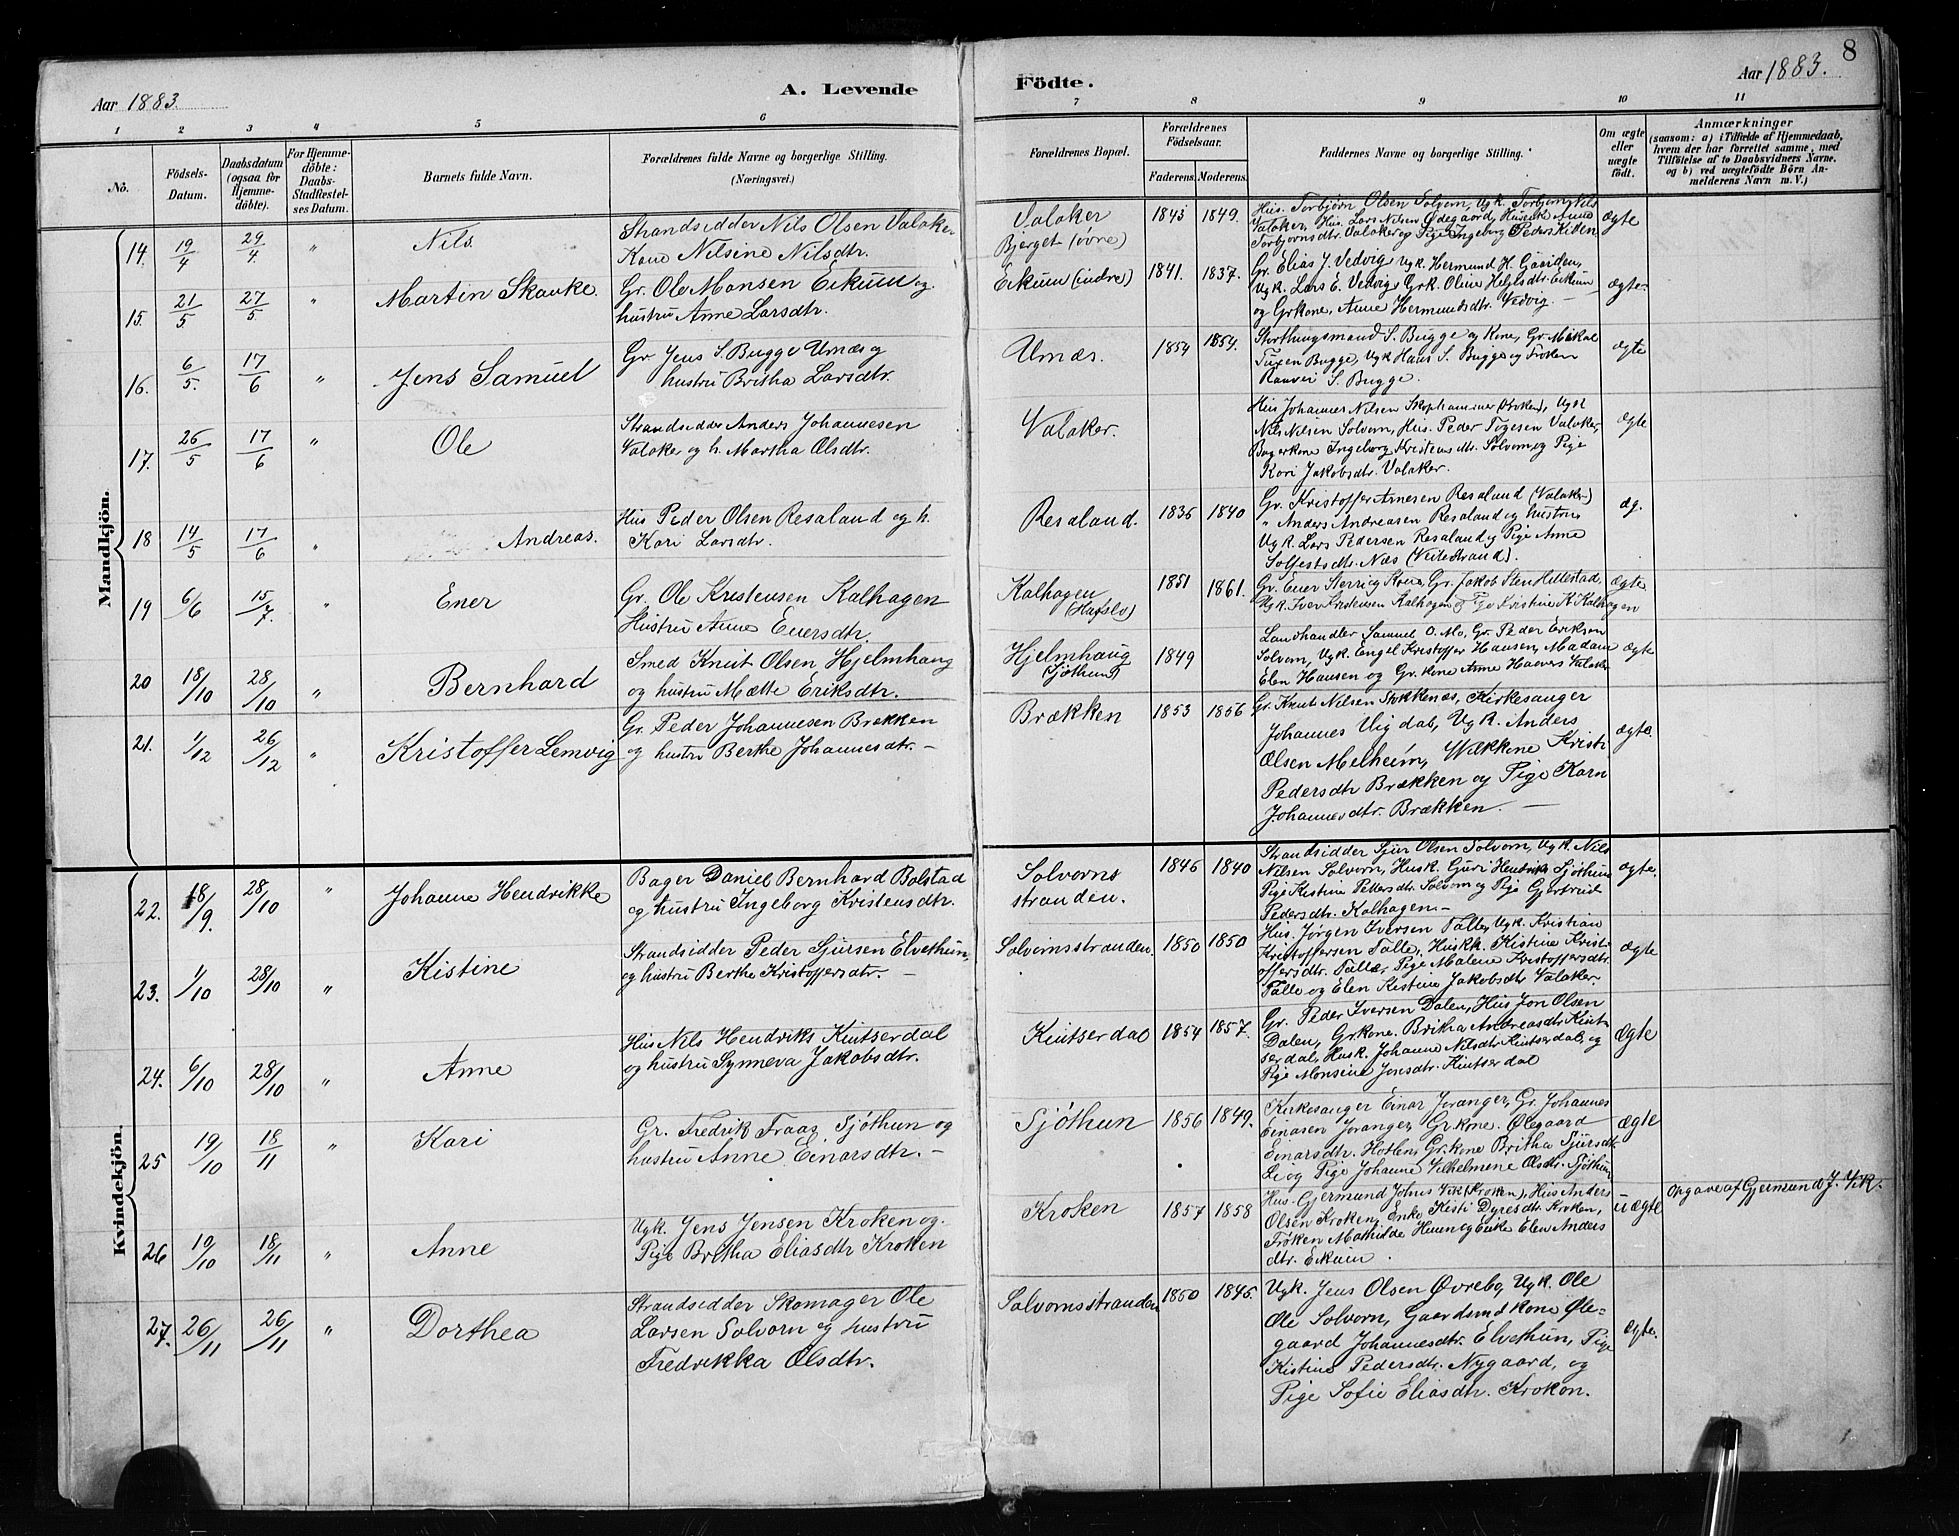 8
Aar 1883.
A. Levende
Födte.
Aar 1883.
1 2 3 4 5 6 7 8 9 10 11
No.
Födsels-
Datum.
Daabsdatum
(ogsaa for
Hjemme-
döbte).
For Hjemme-
döbte:
Daabs-
Stadfæstel-
ses Datum.
Barnets fulde Navn.
Forældrenes fulde Navne og borgerlige Stilling.
(Næringsvei.)
Forældrenes Bopæl.
Forældrenes
Födselsaar.
Faderens. Moderens.
Faddernes Navne og borgerlige Stilling.
Om ægte
eller
uægte
födt.
Anmærkninger
(saasom: a) i Tilfælde af Hjemmedaab,
hvem der har forrettet samme, med
Tilföielse af to Daabsvidners Navne,
og b) ved uægtefödte Börn An-
melderens Navn m. V.)
Mandkjön.
14. 19/4 29/4 " Nils.
Strandsidder Nils Olsen Valaker
Kone Nilsine Nilsdtr.
Valaker
Bjerget (øvne)
1843 1849.
Hus. Torbjørn Olsen Solvorn, Ugk. Torbjørn Nils
Valaker, Hus. Lars Nilsen Ødegaard, Husk. Anne
Torbjornsdtr. Valaker og Pige Ingeborg Peders Kitten
ægte
15. 21/5 27/5 " Martin Skauke.
Gr. Ole Monsen Eikum og
hustru Anne Larsdtr.
Eikum (indre)
1841. 1837.
Gr. Elias J. Vedvig, Ugk. Hermund H. Gaarden,
Ugk. Lars E. Vedvig, Grk. Oline Helgesdtr. Eikum
og Grkone, Anne Hermundsdtr. Vedvig. —
ægte.
16. 6/5. 17/6 " Jens Samuel
Gr. Jens S. Bugge Urnæs og
hustru Britha Larsdtr.
Urnæs.
1854 1854.
Storthingsmand S. Bugge og Kone, Gr. Mikal
Tuxen Bugge, Ugk. Hans S. Bugge og Frøken
Ranvei S. Bugge.
ægte
17. 26/5 17/6 " Ole
Strandsidder Anders Johannesen
Valaker og h. Martha Olsdtr.
Valaker.
Hus Johannes Nilsen Skophammer (Kroken), Ugk
Nils Nilsen Solvorn, Hus. Peder Togesen Valaker,
Bagerkone Ingeborg Kristensdtr. Solvorn og Pige
Kari Jakobsdtr. Valaker.
ægte
18 14/5 17/6 " Andreas.
Hus Peder Olsen Resaland og h.
Kari Larsdtr.
Resaland.
1836 1840
Gr. Kristoffer Arnesen Resaland (Valaker)
" Anders Andreasen Resaland og hustru
Ugk. Lars Pedersen Resaland og Pige Anne
Solfestsdtr. Næs (Veitestrand).
æg.
19 6/6 15/7. " Ener
Gr. Ole Kristensen Kalhagen
Hustru Anne Enersdtr.
Kalhagen
(Hafslo)
1851 1861.
Gr. Ener Sterri og Kone, Gr. Jakob Sten Hillestad,
Ugk. Iver Kristensen Kalhagen og Pige Kristine K. Kalhagen
ægte
20 18/10 28/10 " Bernhard
Smed Knut Olsen Hjelmhaug
og hustru Mætte Eriksdtr.
Hjelmhaug
(Sjøthun)
1849
Landhandler Samuel O. Mo, Gr. Peder Eriksen
Solvorn, Ugk. Engel Kristoffer Hansen, Madame
Elen Hansen og Gr. kone Anne Haavers Valaker
ægte
21. 1/12 26/12 " Kristoffer Lemvig
Gr. Peder Johannesen Brækken
og hustru Berthe Johannesdtr. —
Brækken
1853 1856
Gr. Knut Nilsen Stokkenæs, Kirkesanger
Johannes Vigdal, Ugk. Anders
Olsen Melheim, Kristi
Pedersdtr Brækken og Pige Karn
Johannesdtr. Brækken. —
ægte.
Kvindekjön.
22. 18/9. 28/10 " Johanne Hendrikke
Bager Daniel Bernhard Bolstad
og hustru Ingeborg Kristensdtr.
Solvorns
stranden.
1846 1840
Strandsidder Sjur Olsen Solvorn, Ugk. Nils
Nilsen Solvorn, Husk. Guri Hendriks Sjøthun
Pige Kistine Pettersdtr. Solvorn og Pige Gjertrud
Pedersdtr. Kalhagen.—
ægte.
23. 1/10 28/10 " Kistine
Strandsidder Peder Sjursen Elvethun,
og hustru Berthe Kristoffersdtr. —
Solvornsstranden.
1850 1850
Hus. Jørgen Iversen Talle, Ugk. Kristian
Kristoffersen Talle, Huskk. Kistine Krist-
offersdtr. Talle, Pige Malene Kristoffersdtr
Talle og Elen Kistine Jakobsdtr Valaker.
ægte
24. 6/10 28/10 " Anne
Hus Nils Hendriks Kintserdal
og hustru Synneva Jakobsdtr.
Kintserdal
1854 1857.
Gr. Peder Iversen Dalen, Hus Jon Olsen
Dalen, Grkone. Britha Andreasdtr Kint-
serdal, Husk. Johanne Nilsdtr Kintserdal, og
Pige Monsine Jonsdtr. Kintserdal
ægte
25 19/10 18/11 " Kari
Gr. Fredrik Traas Sjøthun og
hustru Anne Einarsdtr. —
Sjøthun
1856 1849.
Kirkesanger Einar Joranger, Gr. Johannes
Einasen Joranger, Gr. kone. Ølegaard
Einarsdtr. Hotlen, Gr. kone Britha Sjursdtr.
Li og Pige Johanne Vilhelmene Olsdtr. Sjøthun
ægte
26 19/10 18/11 " Anne
Ugk. Jens Jensen Kroken og
Pige Britha Eliasdtr Kroken
Kroken
1857 1858
Hus. Gjermund Johns Vik (Kroken), Hus Anders
Olsen Kroken, Enke Kisti Dyresdtr. Kroken,
Frøken Mathilde Heun og Enke Elen Anders
dtr. Eikum.
uægte
Opgave af Gjermund J. Vik.
27. 26/11 26/11 " Dorthea
Strandsidder Skomager Ole
Larsen Solvorn og hustru
Fredrikka Olsdtr.
Solvornsstranden
1850 1845.
Ugk. Jens Olsen Øvrebø, Ugk. Ole
Ole Solvorn, Gaardsmdkone Øle-
gaard Johannesdtr. Elvethun, Pige
Kistine Pedersdtr. Nygaard, og
Pige Sofie Eliasdtr. Kroken.
ægte.